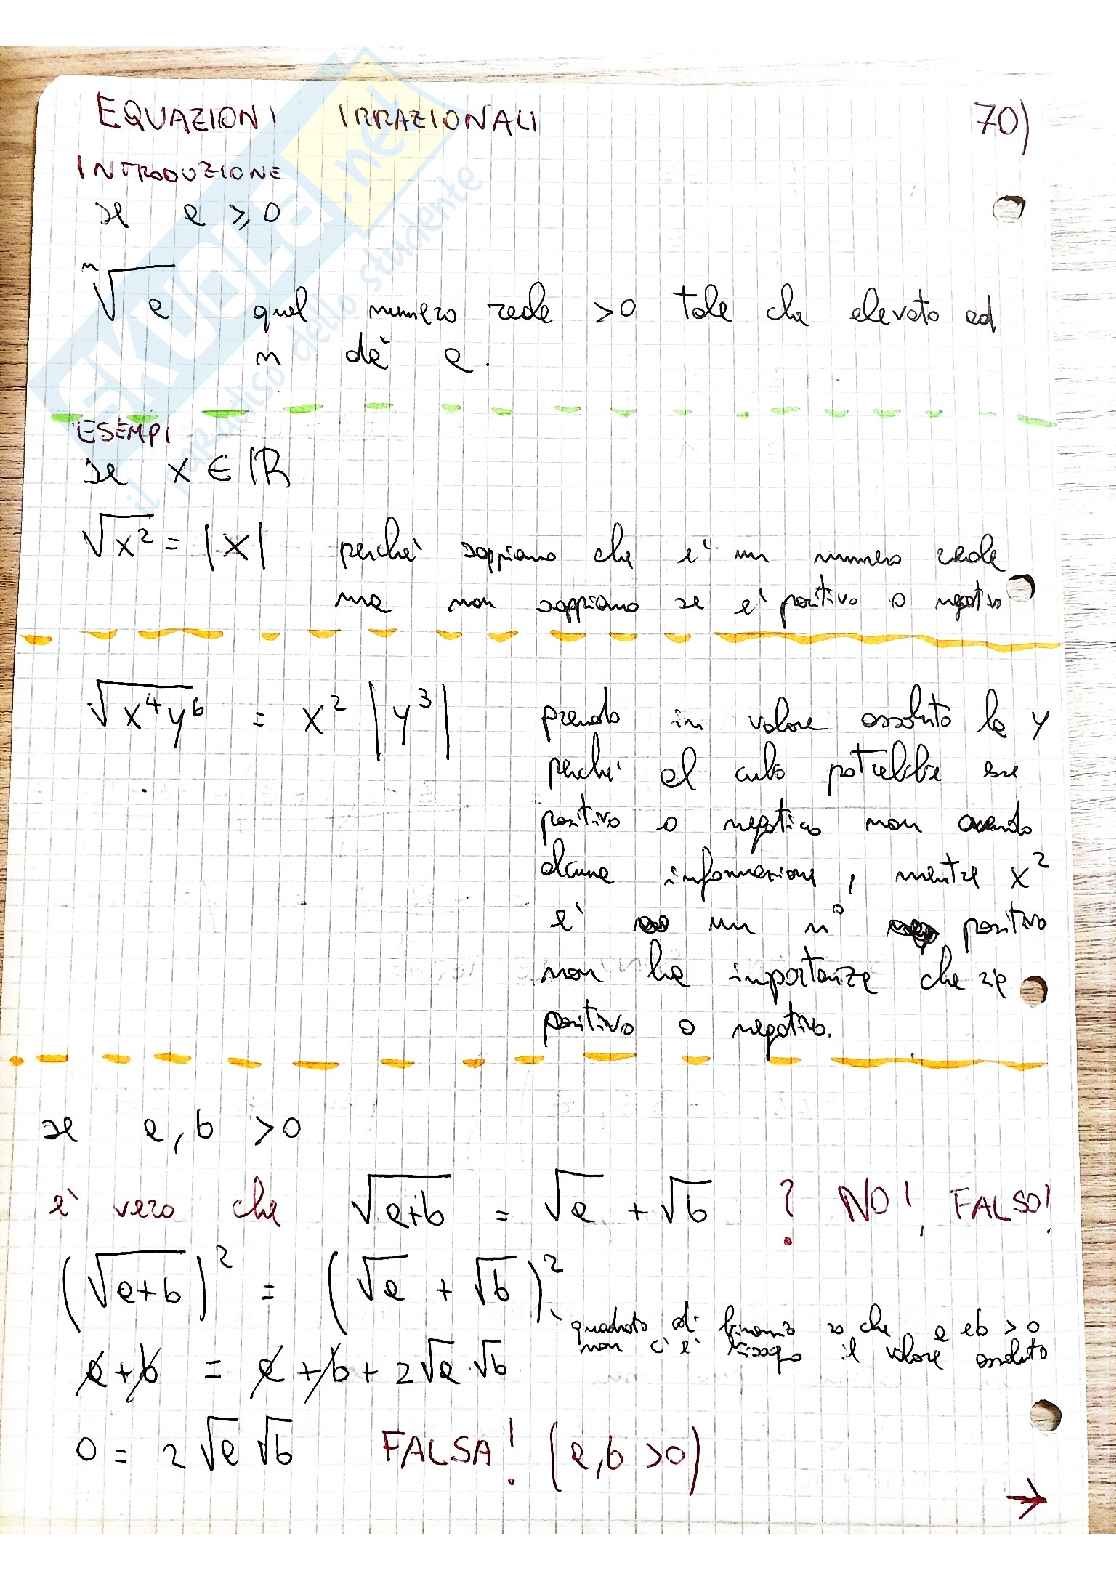 EQUAZIONI IRRAZIONALI 70)
INTRODUZIONE
se a ⩾ 0
ⁿ√a quel numero reale >0 tale che elevato ad
n dà a.
ESEMPI
se x ∈ ℝ
√x² = |x| perché sappiamo che è un numero reale
ma non sappiamo se è positivo o negativo
√x⁴y⁶ = x² |y³| prendo in valore assoluto la y
perché al cubo potrebbe
positivo o negativo non avendo
alcuna informazione, mentre x²
è un n° positivo
non ha importanza che sia
positivo o negativo.
se a, b > 0
è vero che √a+b = √a + √b ? NO!, FALSO!
(√a+b)² = (√a + √b)²
quadrato di binomio so che a e b > 0
non c'è bisogno il valore assoluto
a + b = a + b + 2√a √b
0 = 2√a √b FALSA! (a, b > 0)
→
SKUOLA.net
il paradiso dello studente